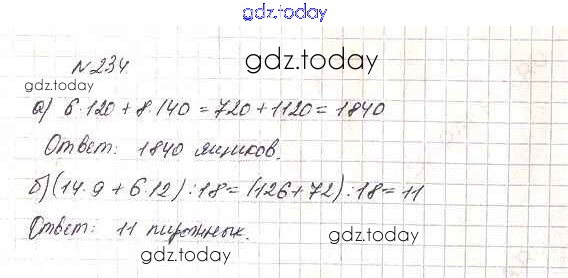 gdz.today
N 234
gdz.today
gdz.today
а) 6·120 + 8·140 = 720 + 1120 = 1840
Ответ: 1840 ящиков.
б) (14·9 + 6·12) : 18 = (126 + 72) : 18 = 11
Ответ: 11 пирожных.
gdz.today
gdz.today